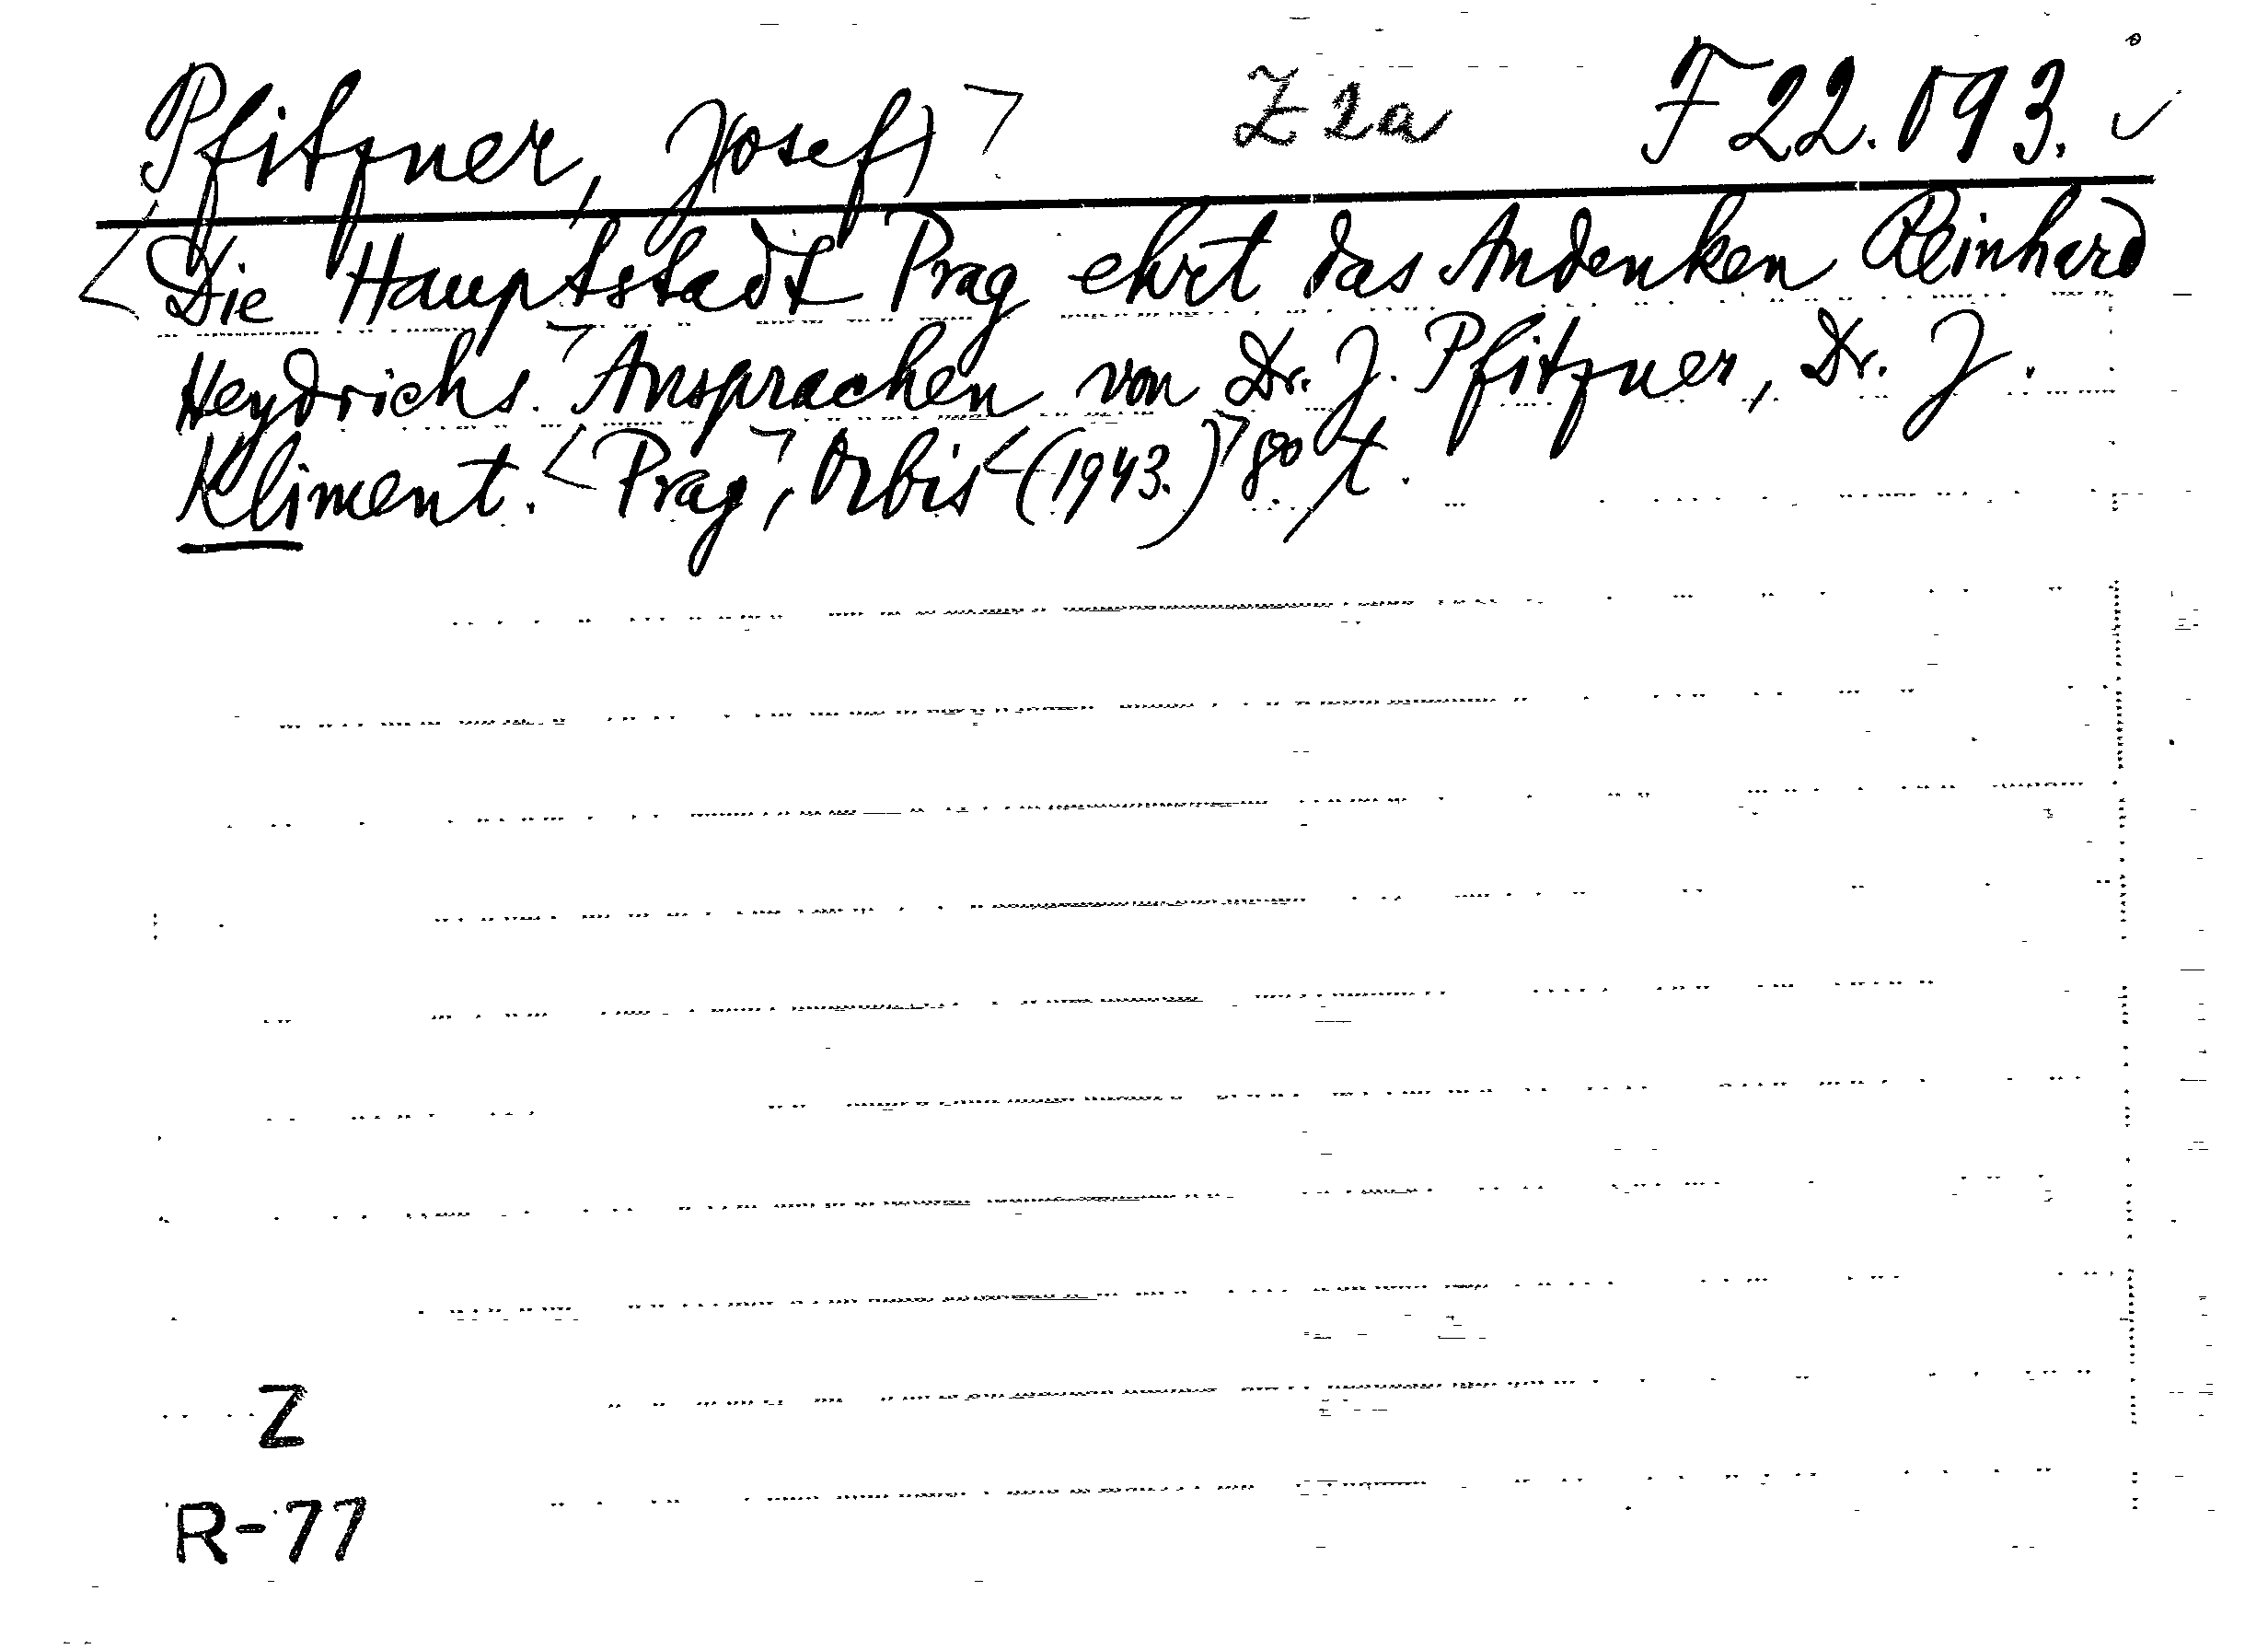 Pfitzner, J(osef)> Z 2a F 22.093. ✓
<Die Hauptstadt Prag ehrt das Andenken Reinhard
Heydrichs.> Ansprachen von Dr. J. Pfitzner, Dr. J.
Kliment. <Prag>, Orbis <(1943.)> 8°
Z
R-77